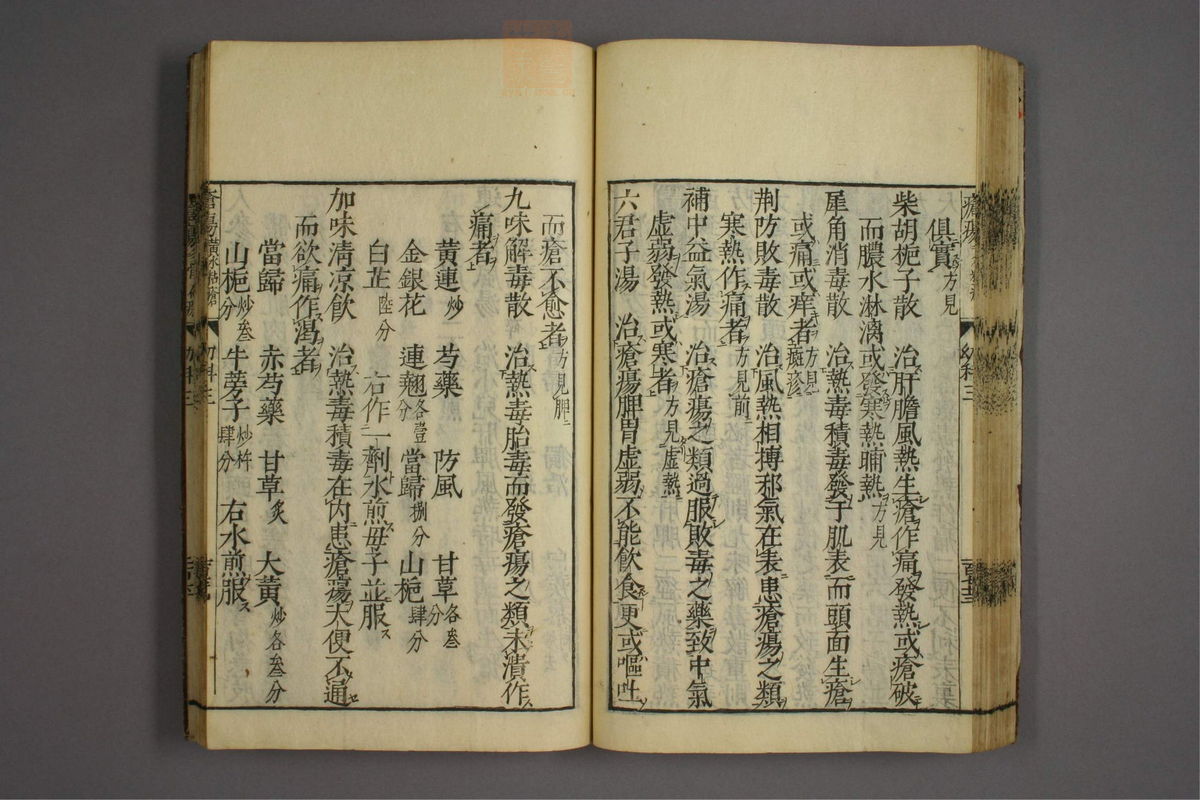 俱實方見
柴胡梔子散 治肝膽風熱生瘡作痛發熱或瘡破
而膿水淋漓或發寒熱晡熱方見
犀角消毒散 治熱毒積毒發于肌表而頭面生瘡
或痛或痒者方見癍疹
荆防敗毒散 治風熱相搏邪氣在表患瘡瘍之類
寒熱作痛者方見前
補中益氣湯 治瘡瘍之類過服敗毒之藥致中氣
虚弱發熱或寒者方見虚熱
六君子湯 治瘡瘍脾胃虚弱不能飲食更或嘔吐
而瘡不愈者方見脾
九味解毒散 治熱毒胎毒而發瘡瘍之類未潰作
痛者
黄連炒 芍藥 防風 甘草各叁分
金銀花 連翹各壹分 當歸捌分 山梔肆分
白芷陸分 右作一劑水煎毋子並服
加味清凉飲 治熱毒積毒在内患瘡瘍大便不通
而欲痛作渴者
當歸 赤芍藥 甘草炙 大黄炒各叁分
山梔炒叁分 牛蒡子炒杵肆分 右水煎服